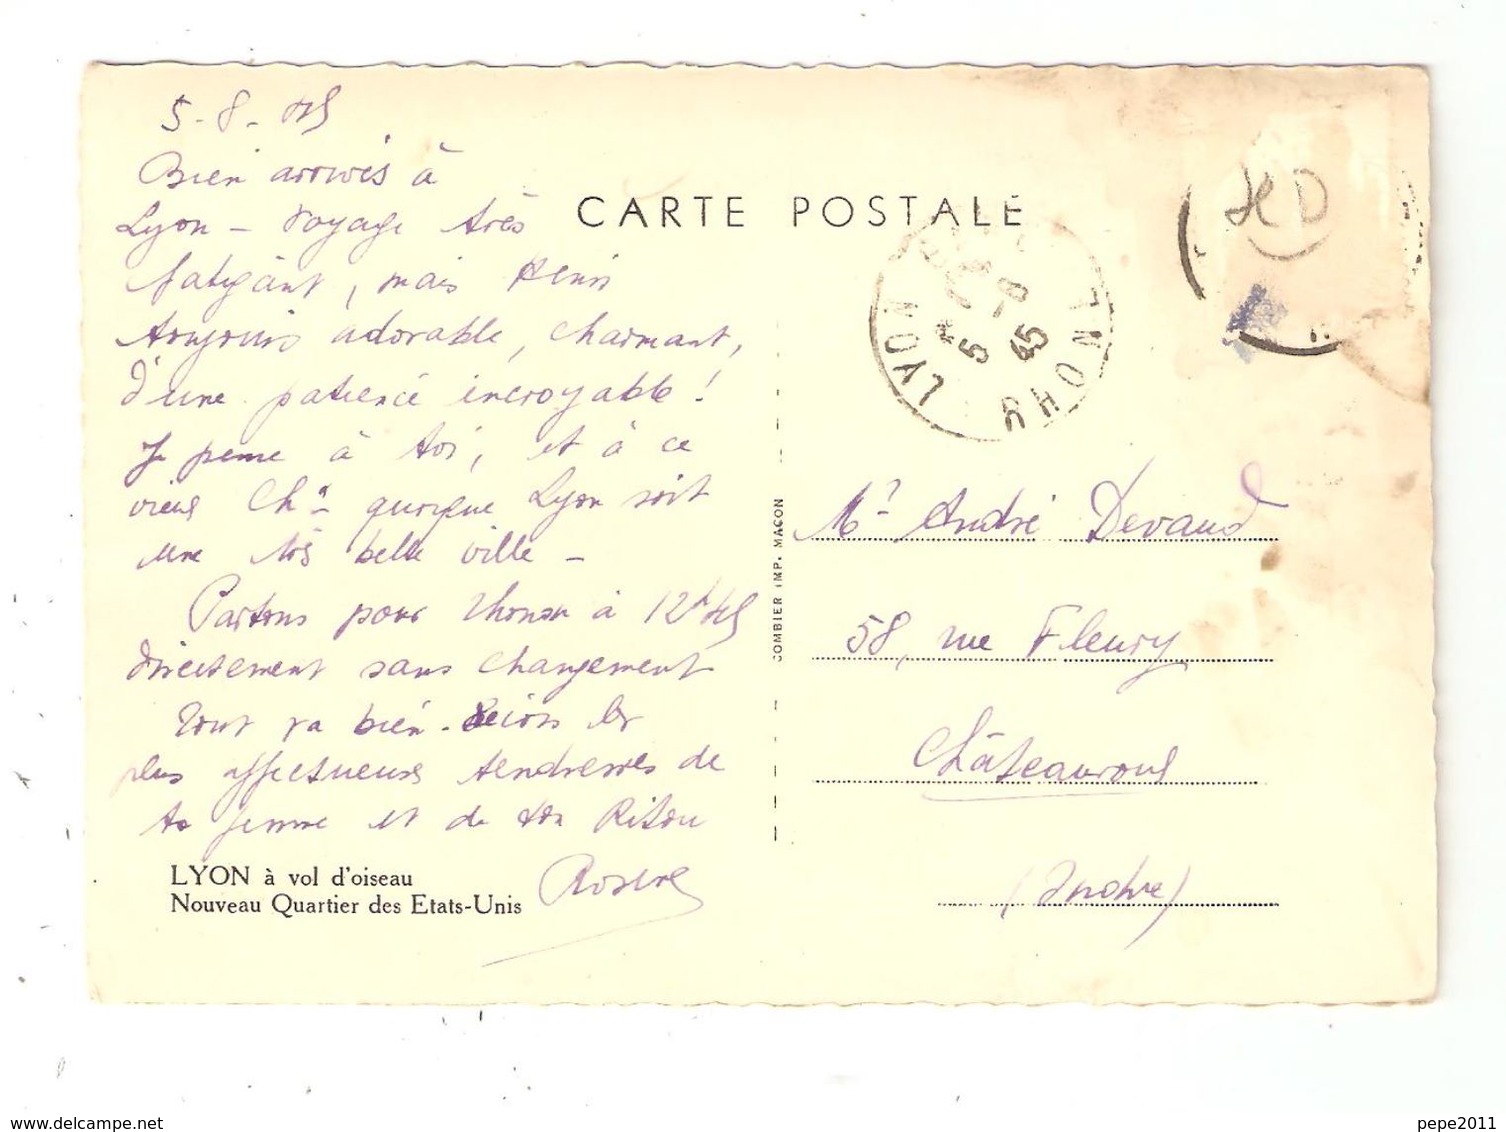 5-8-45
Bien arrivés à
Lyon - Voyage très
fatigant, mais Henri
toujours adorable, charmant,
d'une patience incroyable !
Je pense à toi, et à ce
vieux Chx quoique Lyon soit
une très belle ville -
Partons pour Thonon à 12h45
directement sans changement
Tout va bien. les
plus affectueuses tendresses de
ta femme et de ton Ritou
LYON à vol d'oiseau
Nouveau Quartier des Etats-Unis
CARTE POSTALE
LYON
5 -8
45
RHONE
HD
COMBIER IMP. MACON
Mr André Devaud
58, rue Fleury
Châteauroux
(Indre)
www.delcampe.net
pepe2011